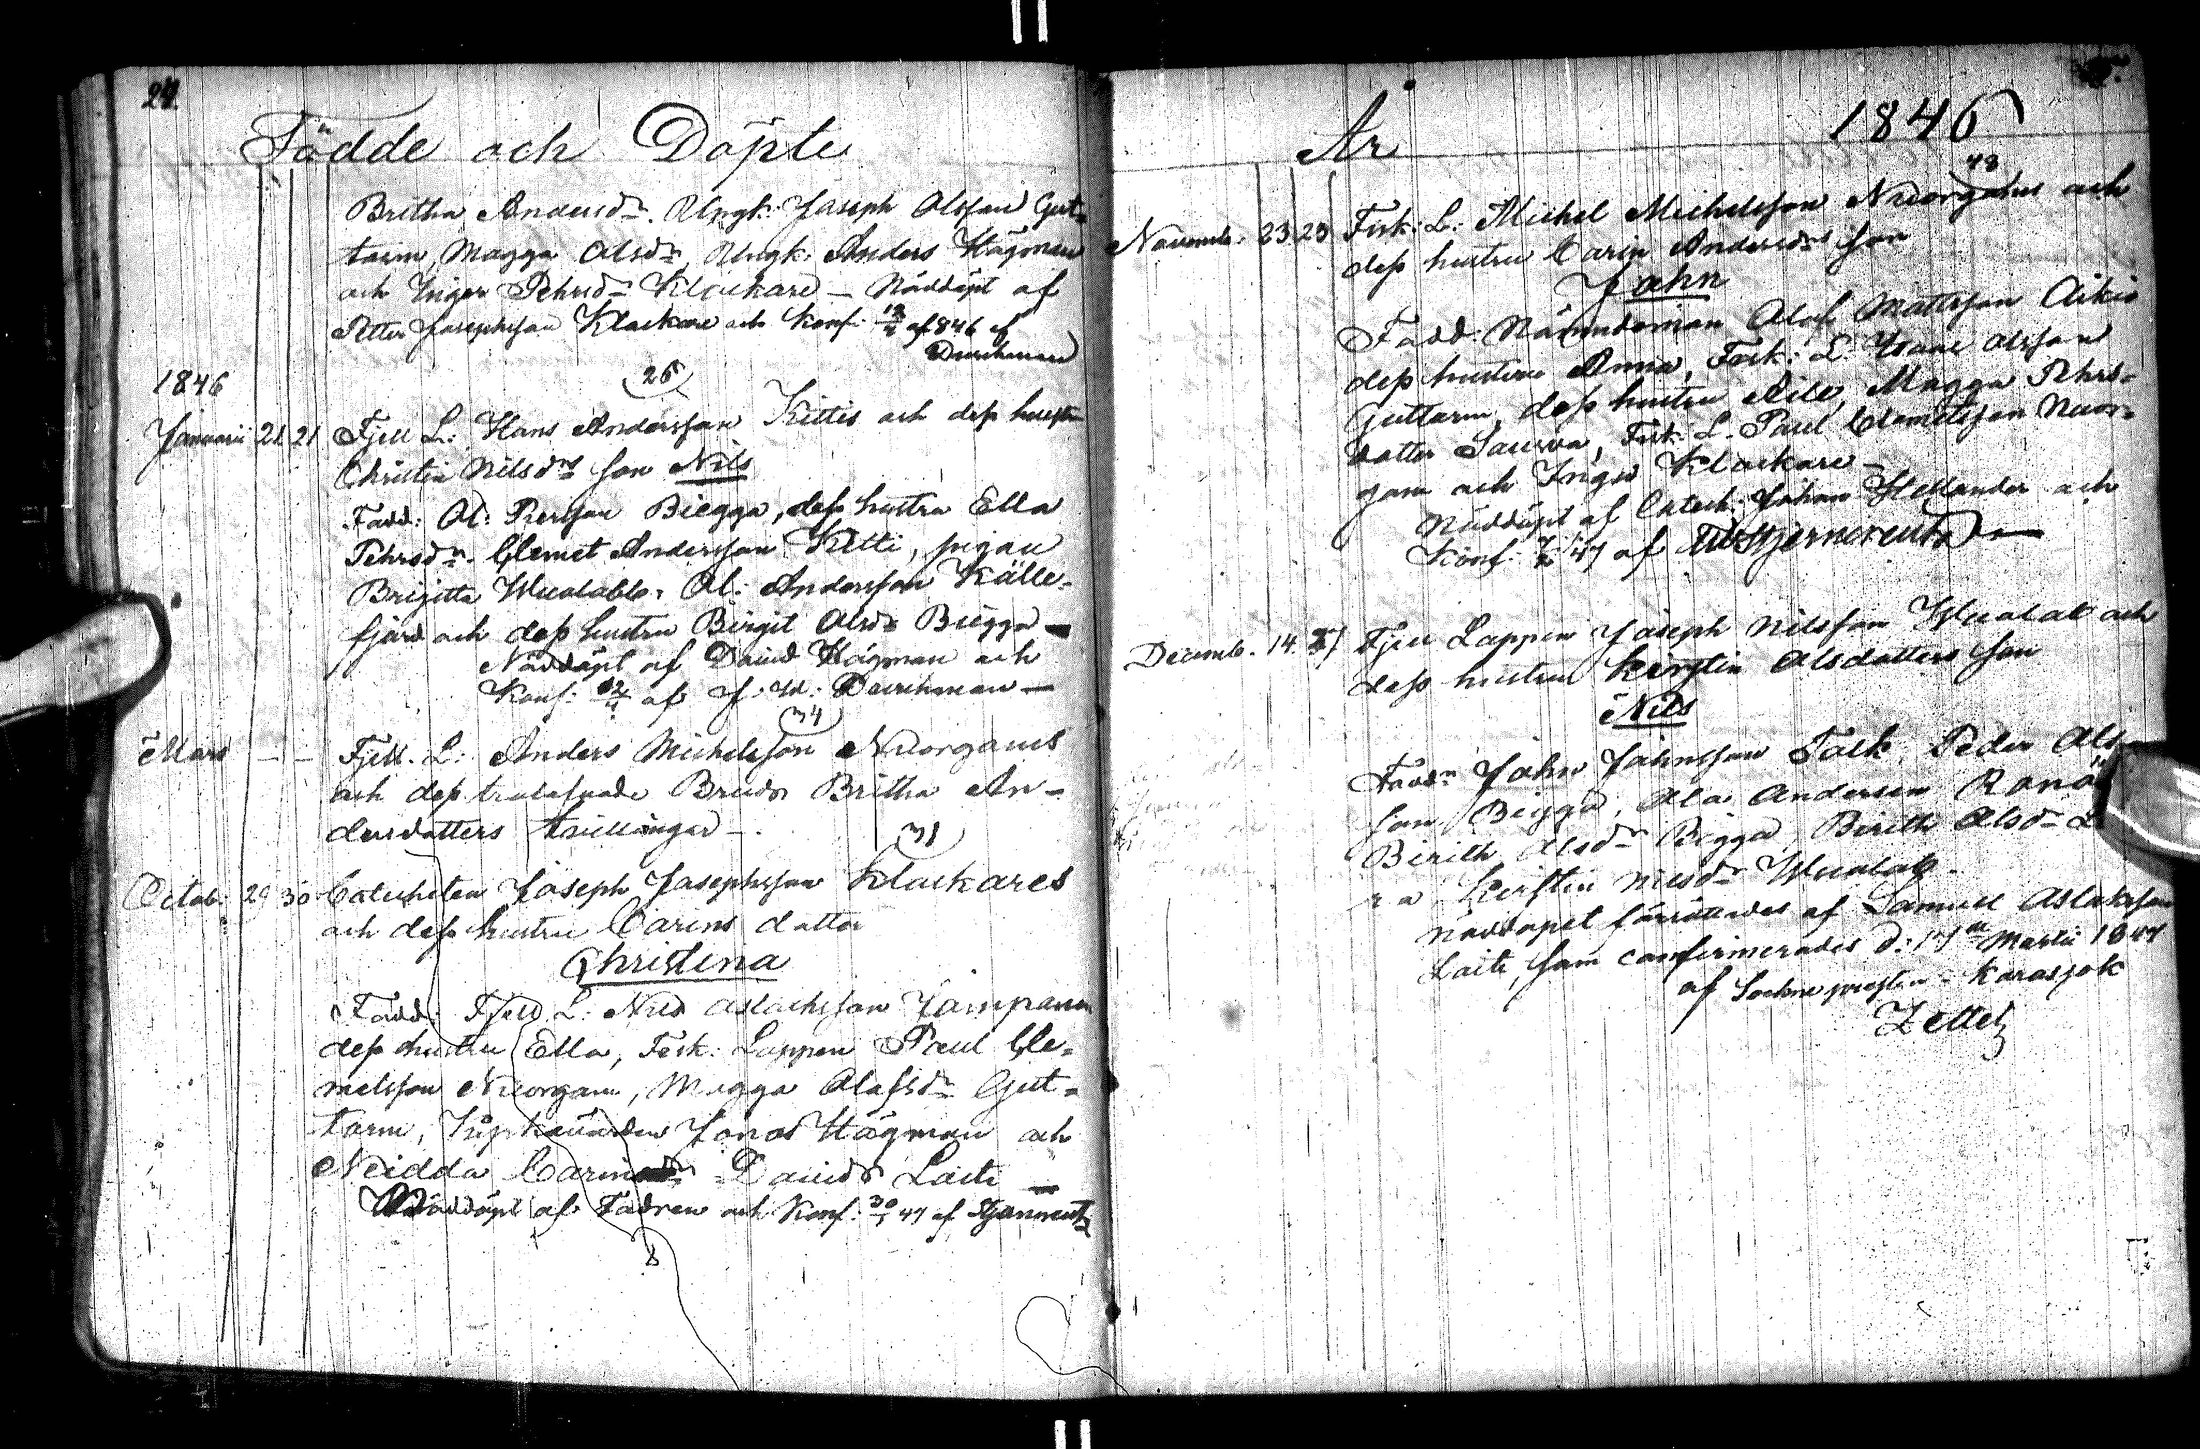 24.
Födde och Döpte
Britha Andersdr. Ungk: Joseph Olsson Gut-
torm, Magga Olsdr, Ungk: Anders Högman
och Inger Pehrsdr Klockare – Nöddöpt af
Petter Josephsson Klockare och Konf: af 846 af
Durchman
1846
26
Januarii 21 21 Fjell L: Hans Andersson Kittis och dess hustru
Christin Nilsdrs son Nils
Fadd: Ol: Piersson Biegga, dess hustru Ella
Pehrsdr. Clemet Andersson Kitti, pigan
Brigitta Wualabb, Ol: Andersson Källe-
fjärd och dess hustru Birgit Olsdr Biegga –
Nöddöpt af David Högman och
Konf: af J. W. Durchman –
34
Mars – – Fjell. L: Anders Michelsson Nuorgams
och dess trolofvade Bruds Britha An-
dersdotters tvillingar –.
31
Octob: 29 30 Catecheten Joseph Josephsson Klockares
och dess hustru Carins dotter
Christina
Fadd: Fjell L: Nils Aslachsson Jompanen
dess hustru Ella, Fisk: Lappen Paul Cle-
metsson Nuorgam, Magga Olofsdr Gut-
torm, Jonas Högman och
Neidda Carin Davids Laiti –
Nöddöpt af Fadren och Konf: 47 af Stjerncreutz
År 1846
48
Novemb: 23 23 Fisk: L: Michel Michelsson Nuorgams och
dess hustru Carin Andersdrs son
John
Fadd: Nämndeman Olof Mattsson Aikio
dess hustru Anna, Fisk: L: Isaac Olsson
Guttorm, dess hustru Aile, Magga Pehrs-
dotter Saurva, Fisk: L. Paul Clemetsson Nuor-
gam och Inga Klockare –
Nöddöpt af Catech: Johan Hellander och
Konf: 47 af Stjerncreutz –
Decemb. 14. 17 Fjell Lappen Joseph Nilsson Wualab och
dess hustru Kerstin Olsdotters son
Nils
Faddr John Johnsson Talk, Peder Ols-
son Biegga, Ola Andersen
Birith Olsdr Biegga, Birith Olsdr
Kerstin Nilsdr Wualab.
Nöddopet förrättades af Samuel Aslaksson
Laiti, som confirmerades d: 17de Martii 1847
af Sockne presten i Karasjok
Zetlitz